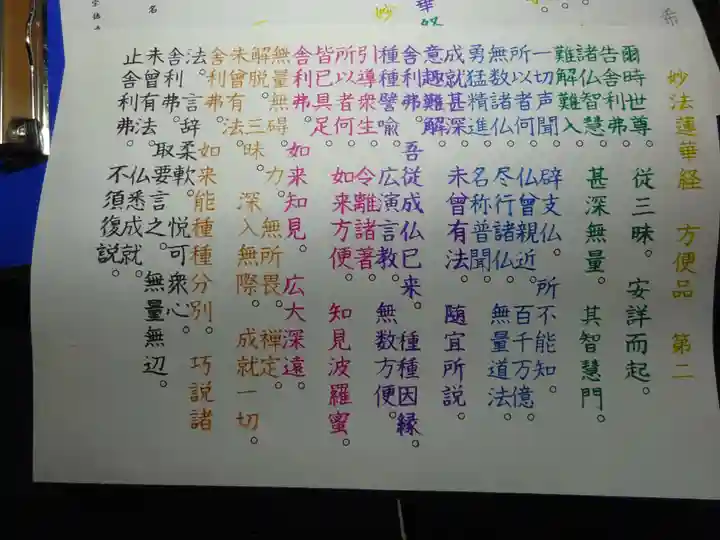 希
華
妙
名
妙法蓮華経 方便品 第二
爾時世尊。 従三昧。 安詳而起。
告舎利弗。
諸仏智慧。 甚深無量。 其智慧門。
難解難入。
一切声聞。 辟支仏。 所不能知。
所以者何。 仏曾親近。 百千万億。
無数諸仏。 尽行諸仏。 無量道法。
勇猛精進。 名称普聞。
成就甚深。 未曾有法。 随宜所説。
意趣難解。
舎利弗。 吾従成仏已来。 種種因縁。
種種譬喩。 広演言教。 無数方便。
引導衆生。 令離諸著。
所以者何。 如来方便。 知見波羅蜜。
皆已具足。
舎利弗。 如来知見。 広大深遠。
無量無礙。 力。 無所畏。 禅定。
解脱。 三昧。 深入無際。 成就一切。
未曾有法。
舎利弗。 如来能種種分別。 巧説諸
法。 言辞柔軟。 悦可衆心。
舎利弗。 取要言之。 無量無辺。
未曾有法。 仏悉成就。
止舎利弗。 不須復説。